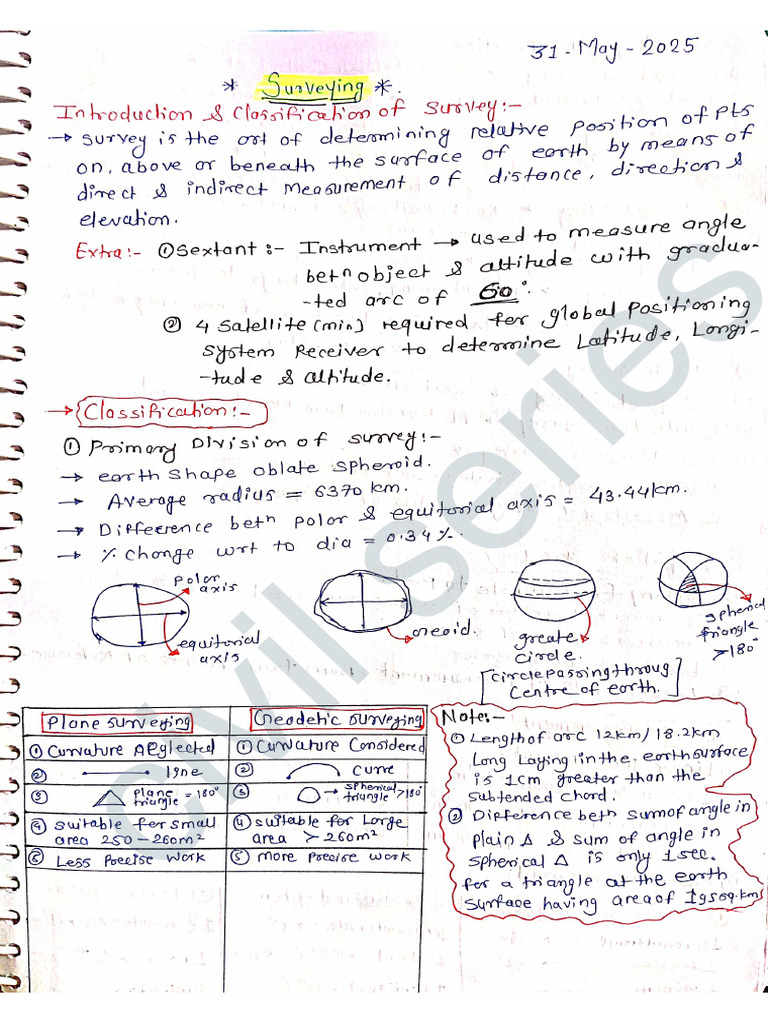 31-May-2025
* Surveying *
Introduction & Classification of Survey:-
→ Survey is the art of determining relative position of pts
on, above or beneath the surface of earth by means of
direct & indirect measurement of distance, direction &
elevation.
Extra:- ① Sextant:- Instrument → used to measure angle
betn object & altitude with gradua-
-ted arc of 60°.
② 4 satellite (min) required for global positioning
system Receiver to determine Latitude, Longi-
-tude & altitude.
→ Classification:-
① Primary Division of survey:-
→ earth shape oblate spheroid.
→ Average radius = 6370 km.
→ Difference betn polar & equitorial axis = 43.44km.
→ % change wrt to dia = 0.34%.
polar
axis
equitorial
axis
Geoid.
greate
circle.
[circle passing throug
Centre of earth.]
spherical
triangle
>180°
Plane surveying
Geodetic surveying
① Curvature Neglected
① Curvature Considered
② line
② Curve
③ plane
triangle = 180°
③ → spherical
triangle >180°
④ suitable for small
area 250-260m²
④ suitable for Large
area > 260m²
⑤ Less Precise work
⑤ more precise work
Note:-
① Length of arc 12km/18.2km
Long Laying in the earth surface
is 1cm greater than the
subtended chord.
② Difference betn sum of angle in
plain △ & sum of angle in
spherical △ is only 1sec.
for a triangle at the earth
surface having area of 195sq.km
civil series